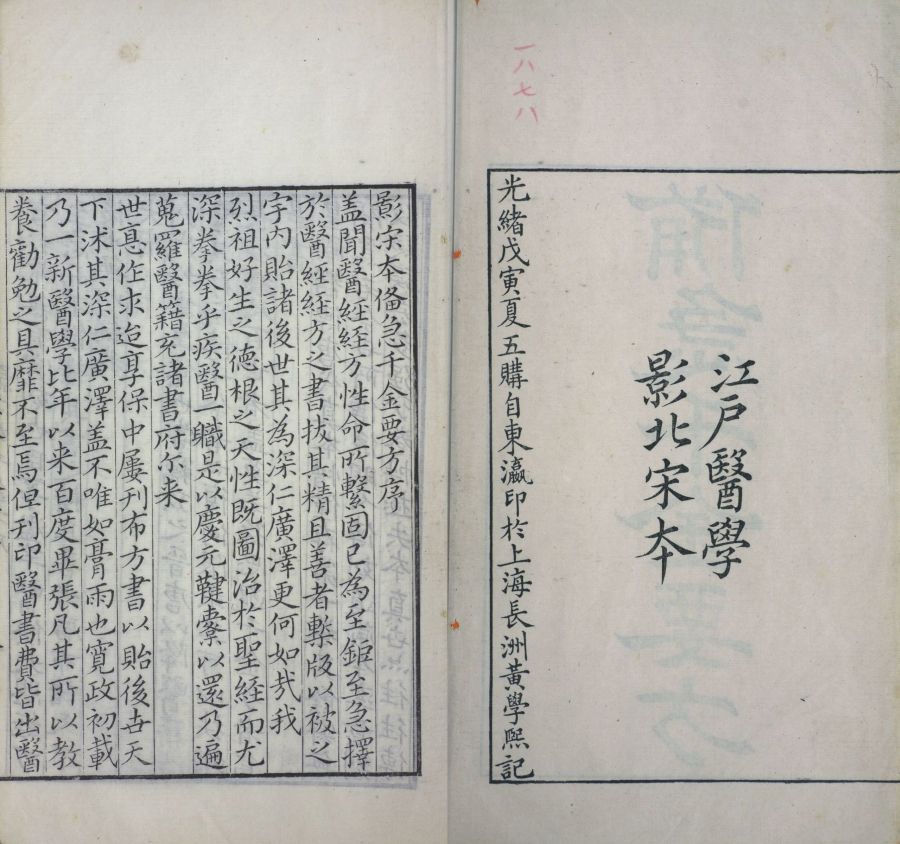 一八七八
江戶醫學
影北宋本
光緒戊寅夏五購自東瀛印於上海長洲黃學熙記
影宋本備急千金要方序
蓋聞醫經經方性命所繫固已為至鉅至急擇
於醫經經方之書拔其精且善者槧版以被之
宇內貽諸後世其為深仁廣澤更何如哉我
烈祖好生之德根之天性既圖治於聖經而尤
深拳拳乎疾醫一職是以慶元鞬櫜以還乃遍
蒐羅醫籍充諸書府尓来
世憙作求迨享保中屢刊布方書以貽後世天
下沭其深仁廣澤蓋不唯如膏雨也寬政初載
乃一新醫學比年以来百度畢張凡其所以教
養勸勉之具靡不至焉但刊印醫書費皆出醫